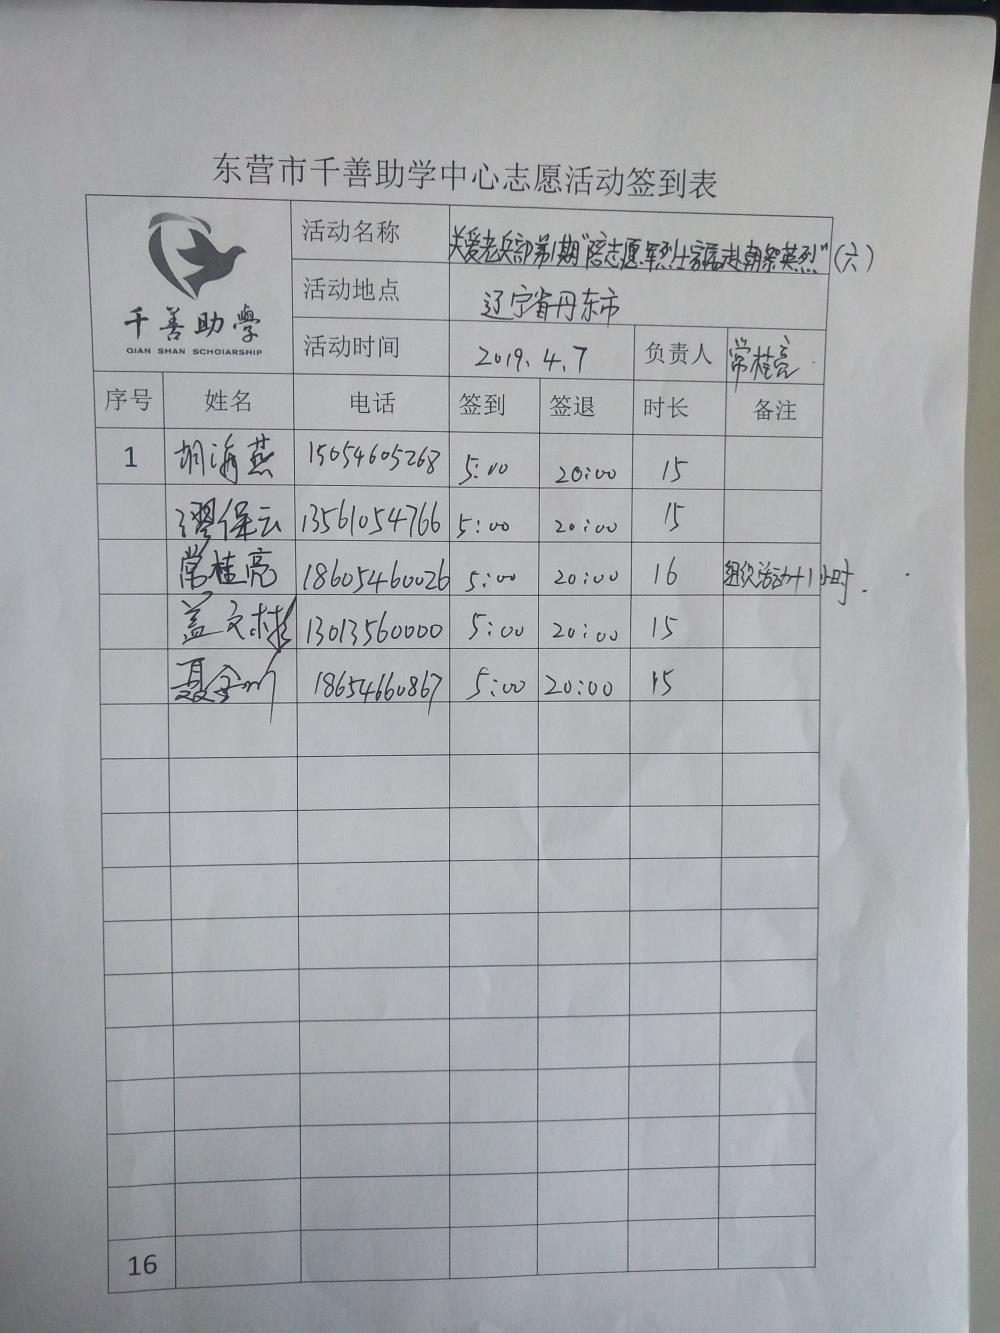 东营市千善助学中心志愿活动签到表
千善助學
QIAN SHAN SCHOlARSHIP
活动名称 关爱老兵部第1期"陪志愿军烈士家属赴朝祭英烈"(六)
活动地点 辽宁省丹东市
活动时间 2019.4.7 负责人 常桂亮
序号 姓名 电话 签到 签退 时长 备注
1 胡海燕 15054605268 5:00 20:00 15
谬保云 13561054766 5:00 20:00 15
常桂亮 18605460026 5:00 20:00 16 组织活动+1小时.
盖文彬 13013560000 5:00 20:00 15
聂金川 18654660867 5:00 20:00 15
16